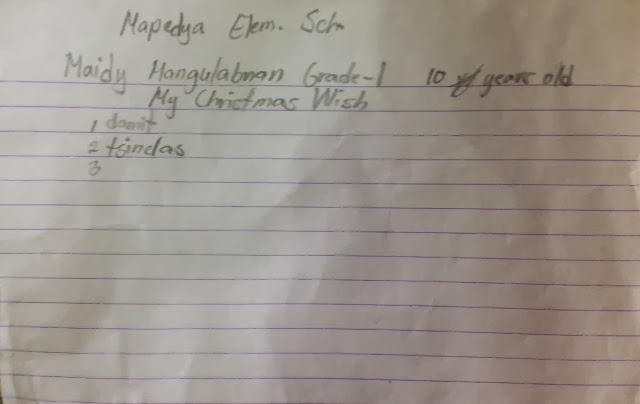 Mapedya Elem. Sch.
Maidy Mangulabnan Grade-1 10 years old
My Christmas Wish
1 damit
2 tsinelas
3